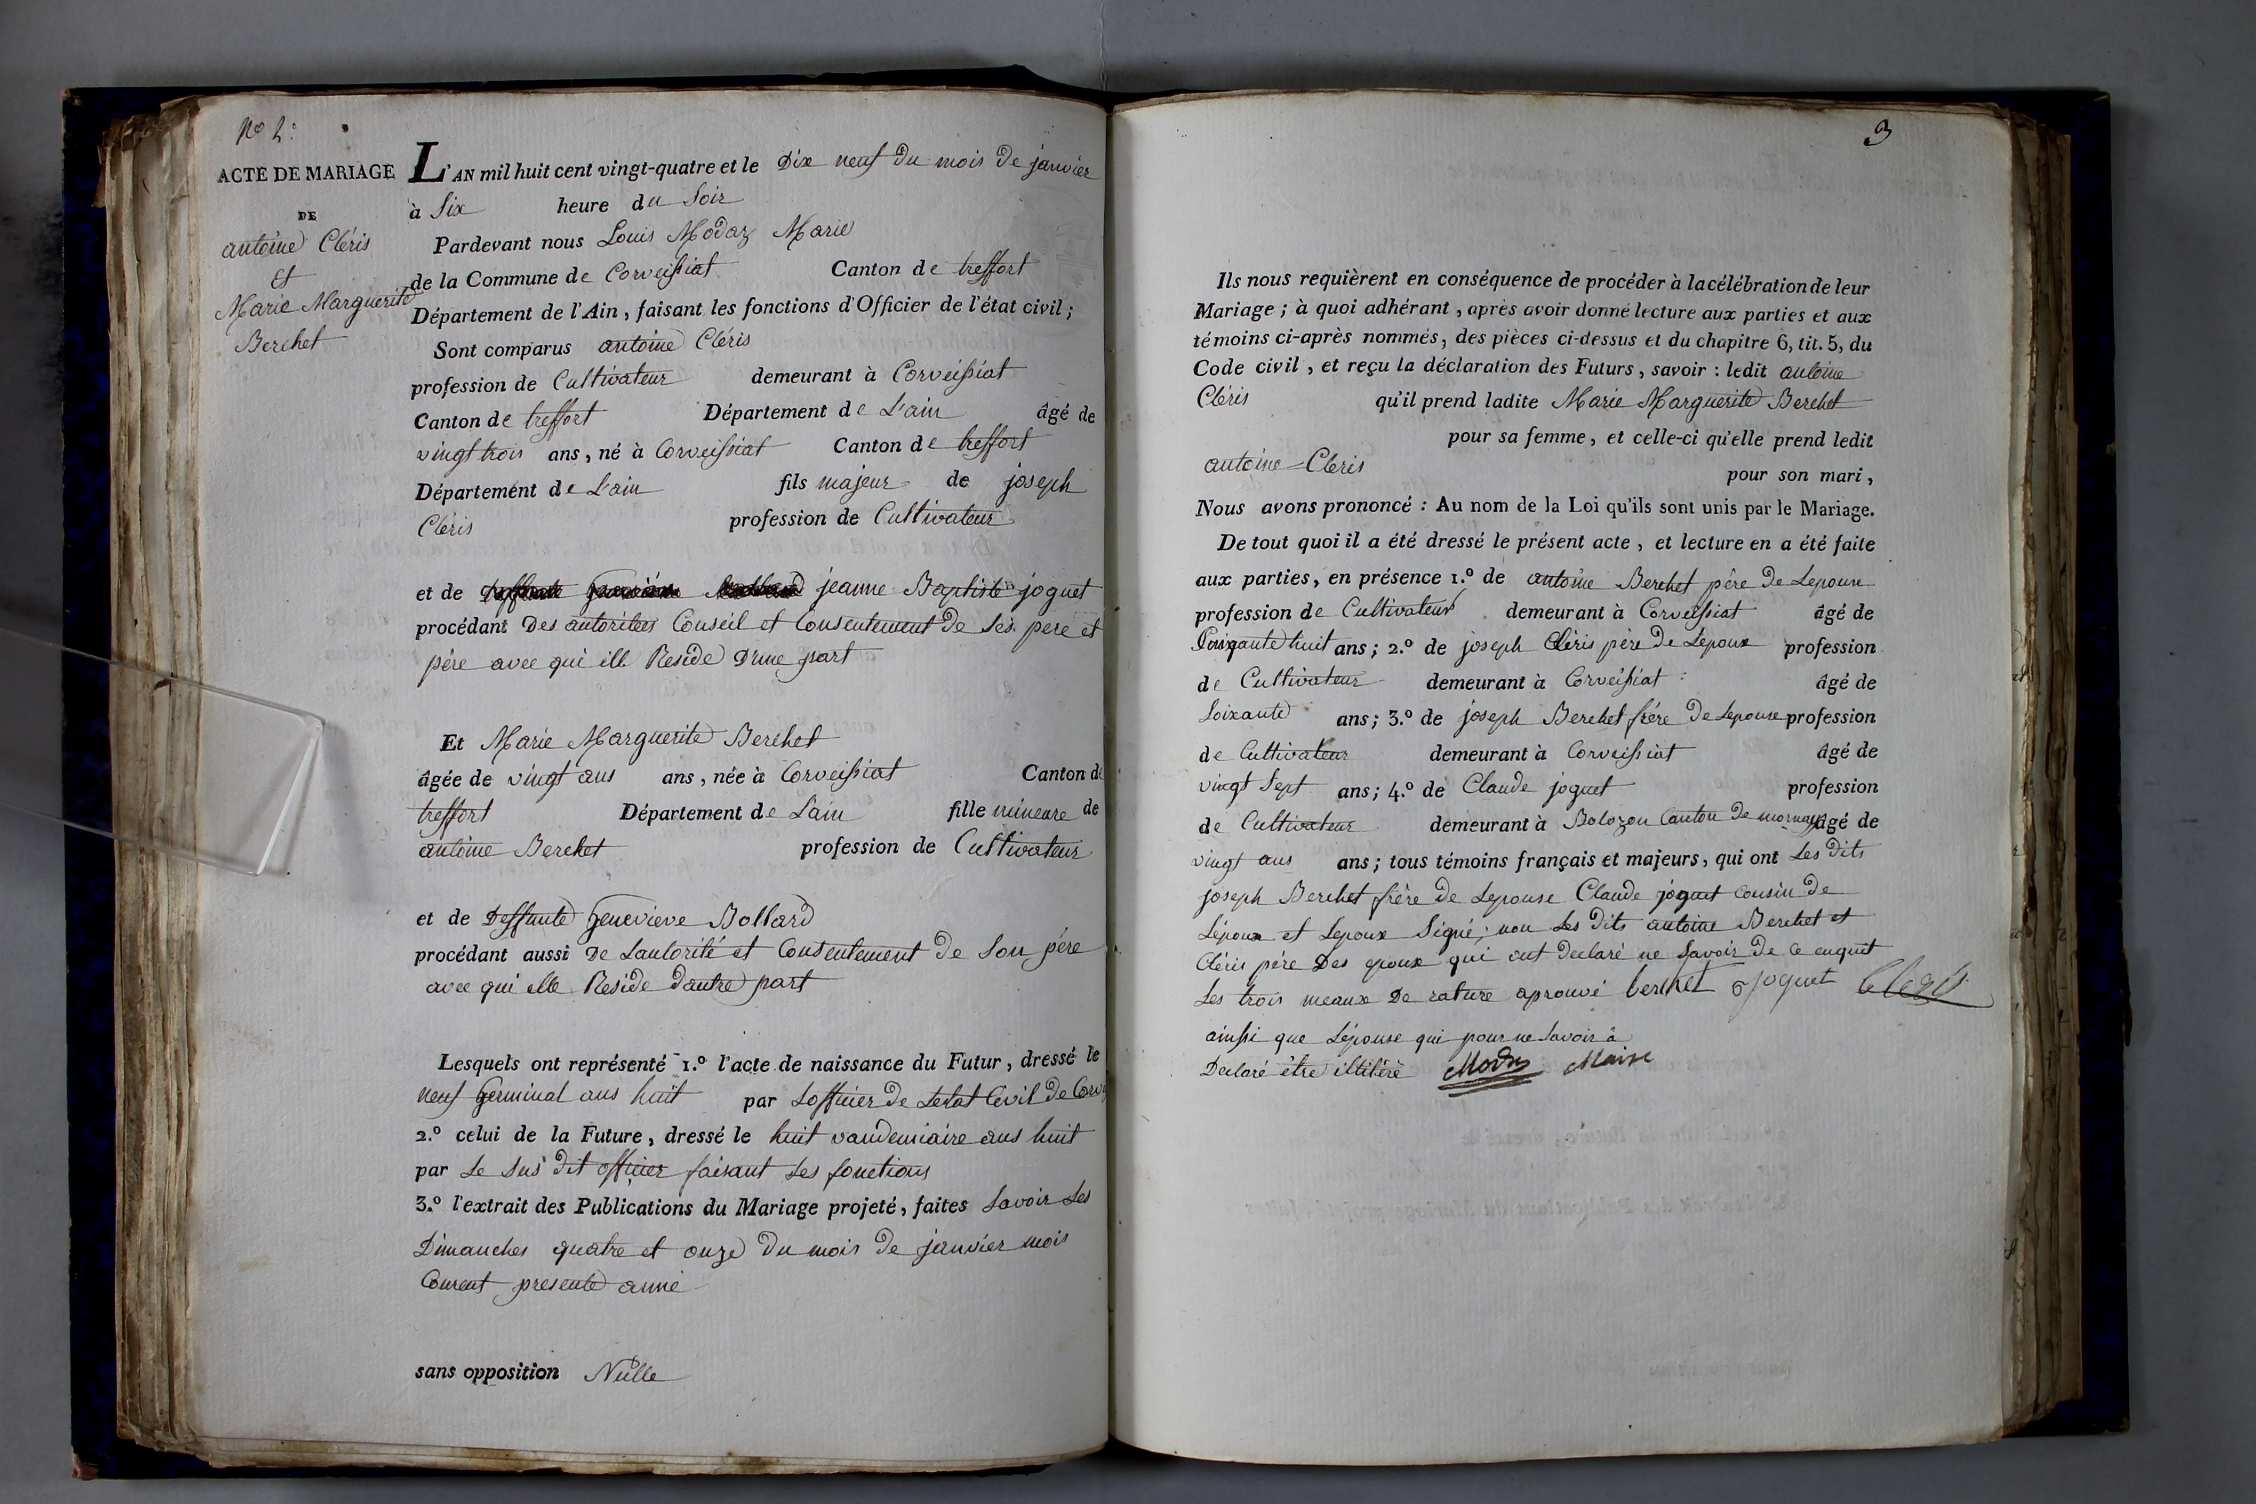 Nº 2:
ACTE DE MARIAGE
DE
antoine Cléris
et
Marie Marguerite
Berchet
L'AN mil huit cent vingt-quatre et le Dix neuf du mois de janvier
à Six heure du Soir
Pardevant nous Louis Modaz Marie
de la Commune de Corveissiat Canton de treffort
Département de l'Ain, faisant les fonctions d'Officier de l'état civil;
Sont comparus antoine Cléris
profession de Cultivateur demeurant à Corveissiat
Canton de treffort Département de L'ain âgé de
vingt trois ans, né à Corveissiat Canton de treffort
Département de L'ain fils majeur de joseph
Cléris profession de Cultivateur
et de jeanne Baptiste joguet
procédant Des autorites Conseil et Consentement de Ses pere et
père avec qui ill Reside D'une part
Et Marie Marguerite Berchet
âgée de vingt ans ans, née à Corveissiat Canton de
treffort Département de L'ain fille mineure de
antoine Berchet profession de Cultivateur
et de Deffunte Genevieve Bollard
procédant aussi de Lautorité et Consentement de Son père
avec qui elle Reside dautre part
Lesquels ont représenté 1.º l'acte de naissance du Futur, dressé le
neuf Germinal ans huit par Lofficier de Letat Civil de Corv
2.º celui de la Future, dressé le huit vandemiaire ans huit
par Le Sus dit officier faisant Les fonctions
3.º l'extrait des Publications du Mariage projeté, faites Savoir Les
Dimanches quatre et onze du mois de janvier mois
Courent presente anné
sans opposition Nulle
3
Ils nous requièrent en conséquence de procéder à la célébration de leur
Mariage; à quoi adhérant, après avoir donné lecture aux parties et aux
témoins ci-après nommés, des pièces ci-dessus et du chapitre 6, tit. 5, du
Code civil, et reçu la déclaration des Futurs, savoir: ledit antoine
Cléris qu'il prend ladite Marie Marguerite Berchet
pour sa femme, et celle-ci qu'elle prend ledit
antoine Cleris pour son mari,
Nous avons prononcé: Au nom de la Loi qu'ils sont unis par le Mariage.
De tout quoi il a été dressé le présent acte, et lecture en a été faite
aux parties, en présence 1.º de antoine Berchet père de Lepouse
profession de Cultivateur demeurant à Corveissiat âgé de
Soixante huit ans; 2.º de joseph Cléris père de Lepoux profession
de Cultivateur demeurant à Corveissiat âgé de
Soixante ans; 3.º de joseph Berchet frére de Lepouse profession
de Cultivateur demeurant à Corveissiat âgé de
vingt Sept ans; 4.º de Claude joguet profession
de Cultivateur demeurant à Bolozon Canton de mornay âgé de
vingt ans ans; tous témoins français et majeurs, qui ont Les dits
joseph Berchet frère de Lepouse Claude joguet cousin de
Lépoux et Lepoux Signé; non Les dits antoine Berchet et
Cléris père Des epoux qui ont Declaré ne Savoir de ce enquit
Les trois meaux De rature aprouvé berchet joguet Cleris
ainssi que Lépouse qui pour ne Savoir à
Declaré être illitéré Modas Maire